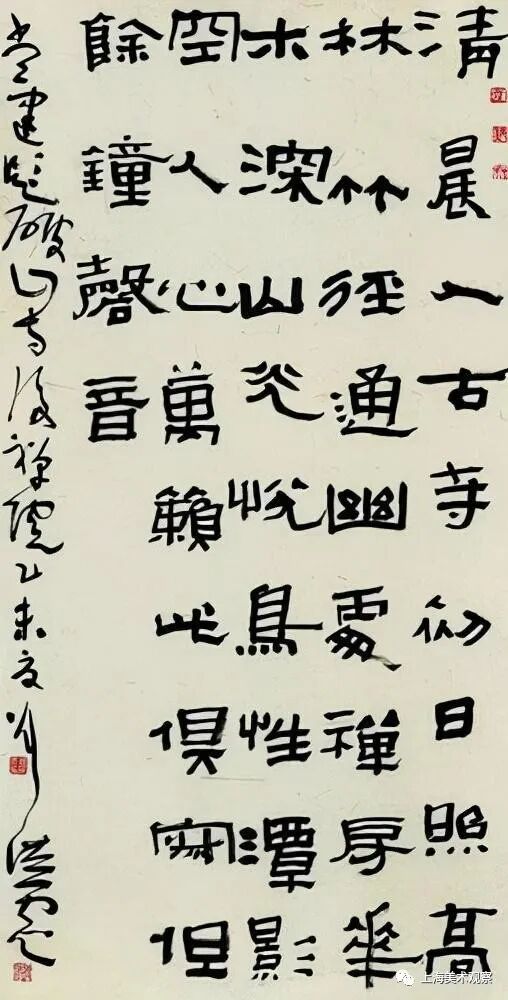 清晨入古寺初日照高
林竹徑通幽處禪房華
木深山光悅鳥性潭影
空人心萬籟此俱寂但
餘鐘磬音
常建題破山寺後禪院乙未夏洪
上海美术观察